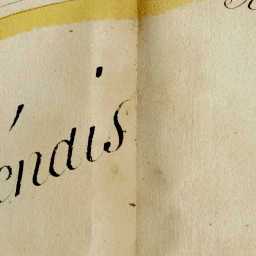 éndis